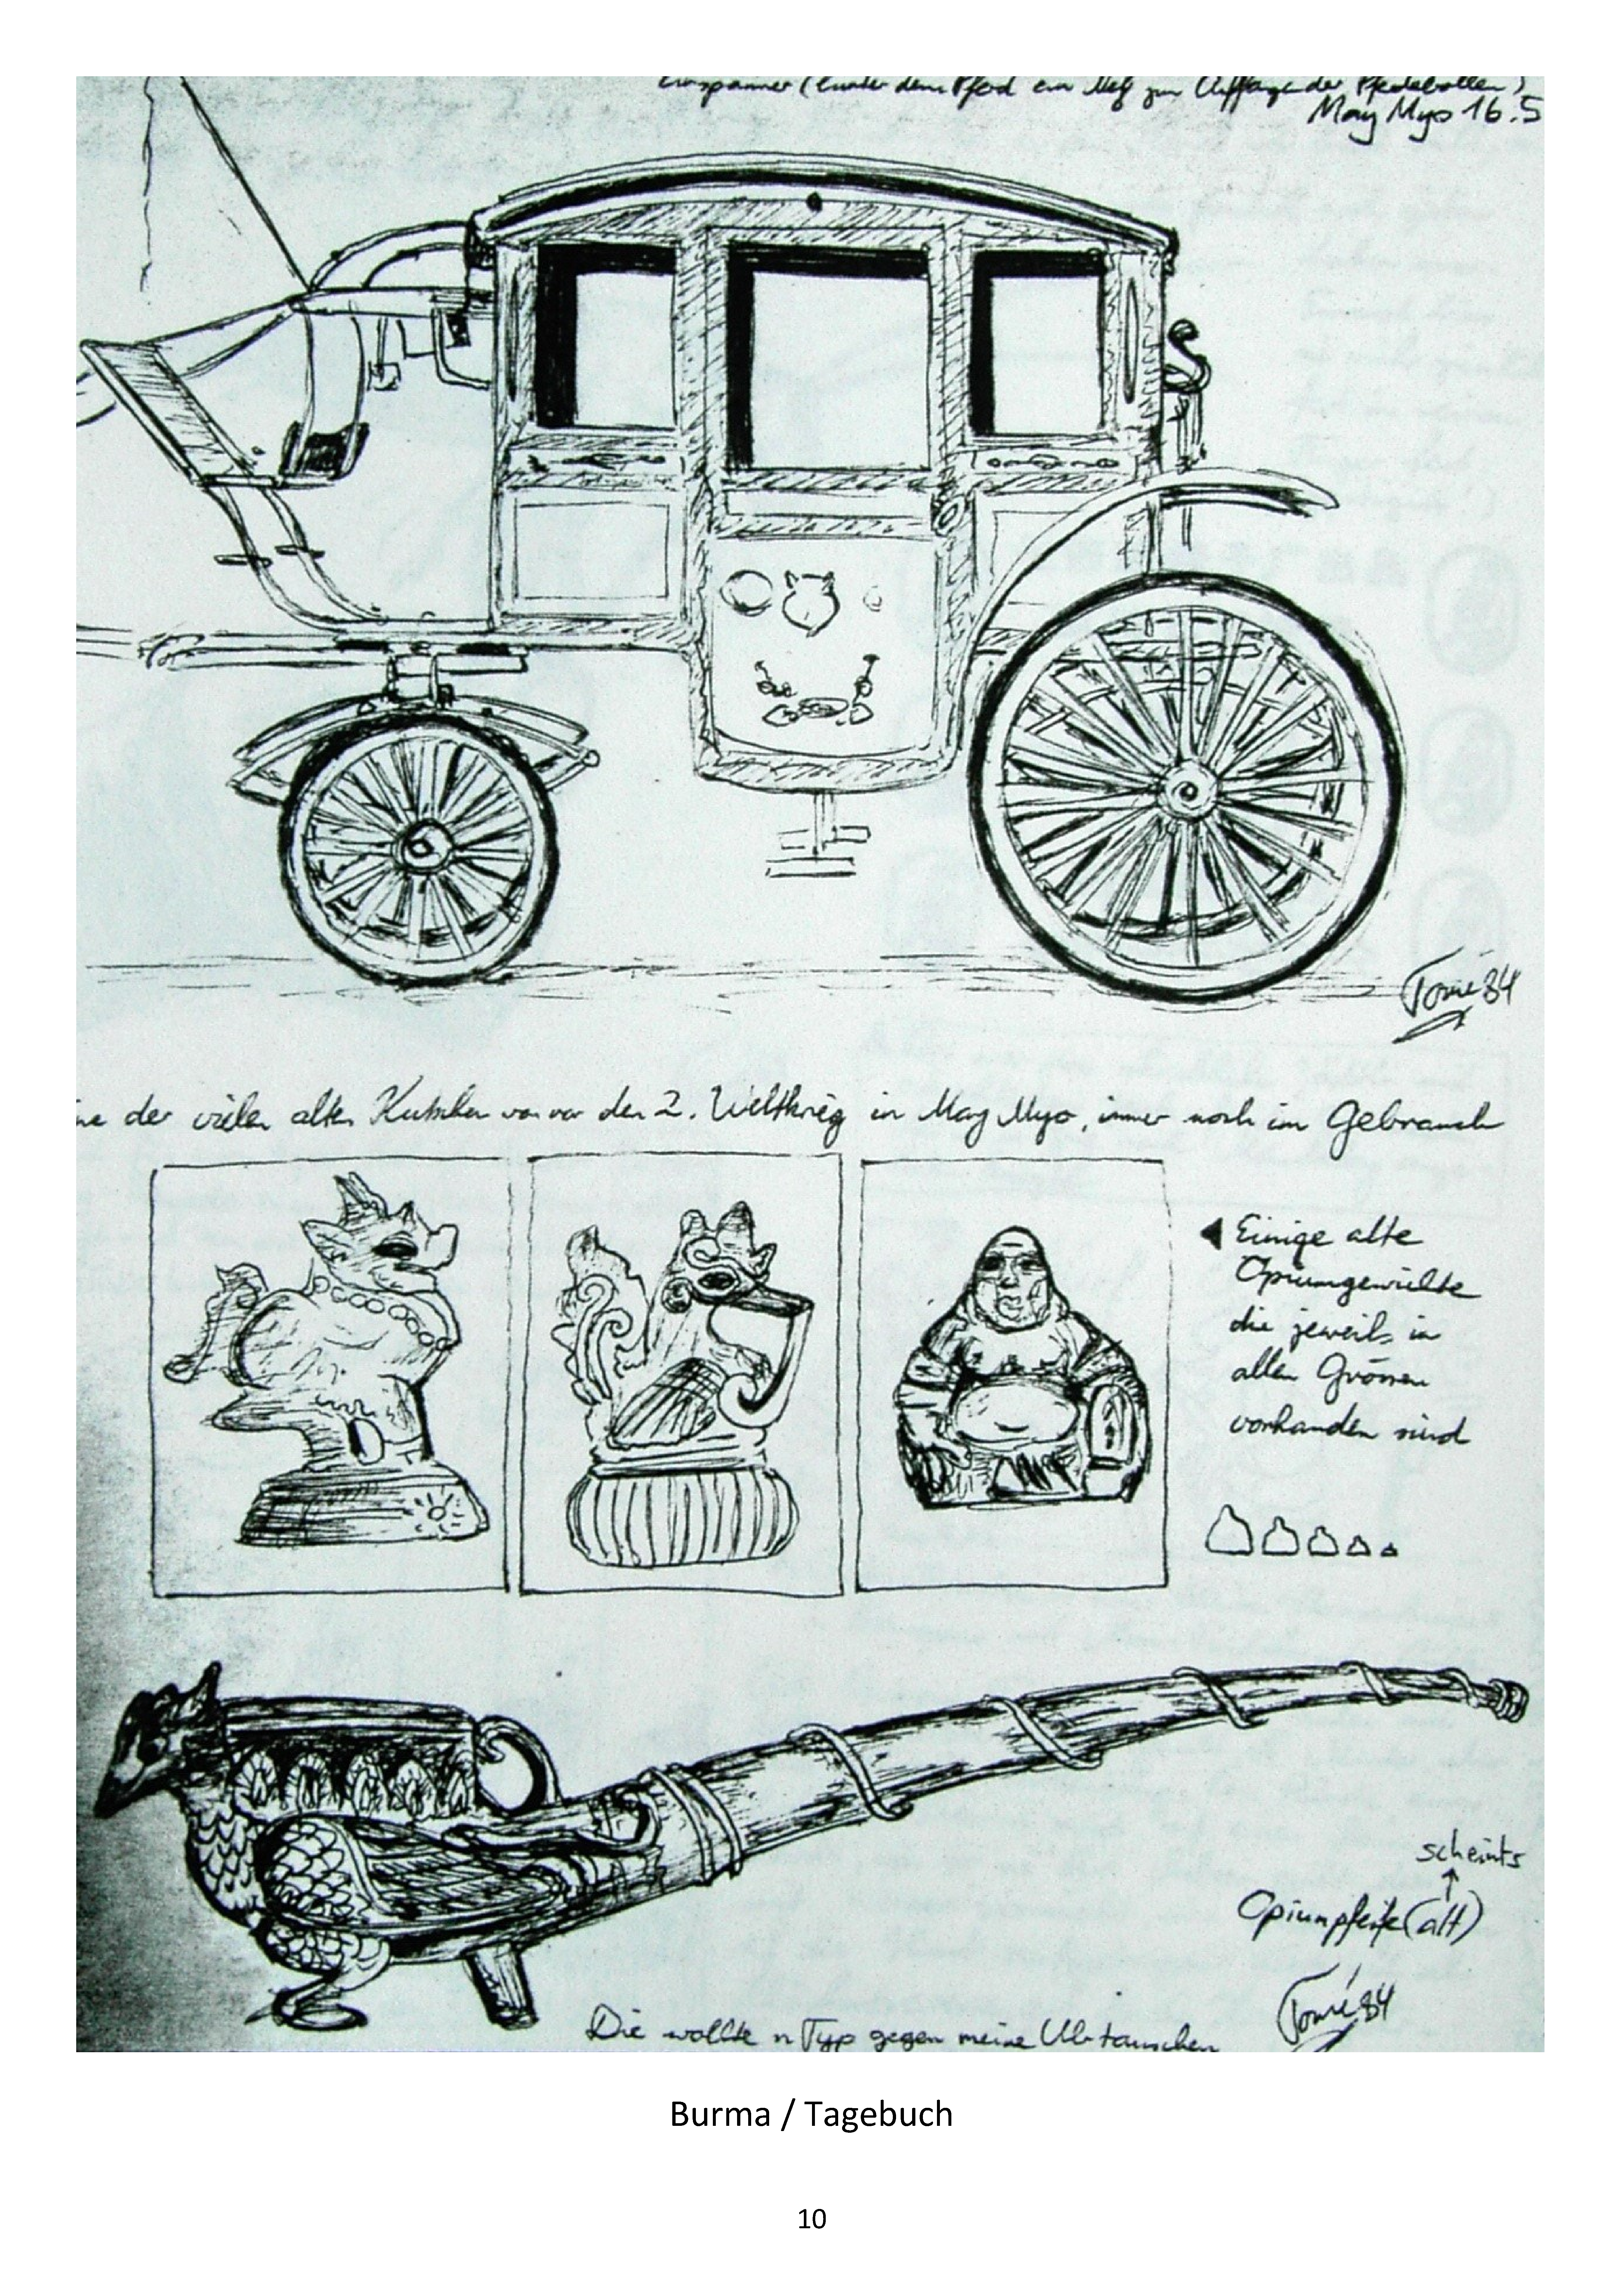 Einspänner (hinter dem Pferd ein Netz zum Auffangen der Pferdebollen)
May Myo 16.5
Tomé 84
ne der vielen alten Kutschen von vor den 2. Weltkrieg in May Myo, immer noch im Gebrauch
Einige alte
Opiumgewichte
die jeweils in
allen Grössen
vorhanden sind
scheints
Opiumpfeife (alt)
Tomé 84
Die wollte n Typ gegen meine Uhr tauschen
Burma / Tagebuch
10